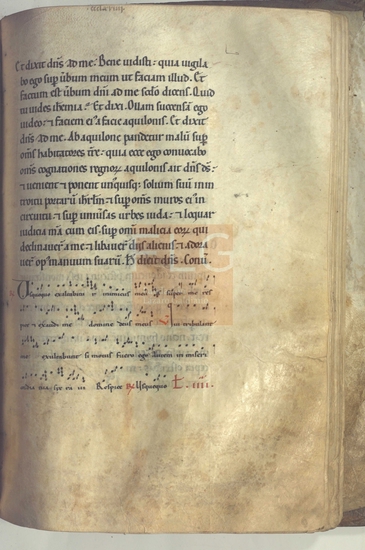 Et dixit dñs ad me. Bene uidisti. quia uigila
bo ego sup uerbum meum ut faciam illud. Et
factum est ùbum dñi ad me scđo dicens. Quid
tu uides ihemia. Et dixi. Ollam succensã ego
uideo. ⁊ faciem ei a facie aquilonis. Et dixit
dñs ad me. Ab aquilone pandetur malũ sup
oms habitatores tre. quia ecce ego conuocabo
oms cognationes regnoꝝ aquilonis ait dñs.
⁊ uenient ⁊ ponent unusquisq; solium suũ in in
troitu portarũ ihrlm ⁊ sup oms muros ei in
circuitu ⁊ sup uniũsas urbes iuda. ⁊ loquar
iudicia mea cum eis. sup omnẽ malicia eorꝝ qui
derelinquer̃ me ⁊ libauer̃ diis alienis ⁊ adora
uer̃ op manuum suarũ. H dicit dñs. Conũ.
Usquequo exaltabitur inimicus meus super me res
pice et exaudi me domine deus meus Qui tribulant
me exultabunt si motus fuero ego autem in miseri
cordia tua speraui Respice Usquequo L. IIII.